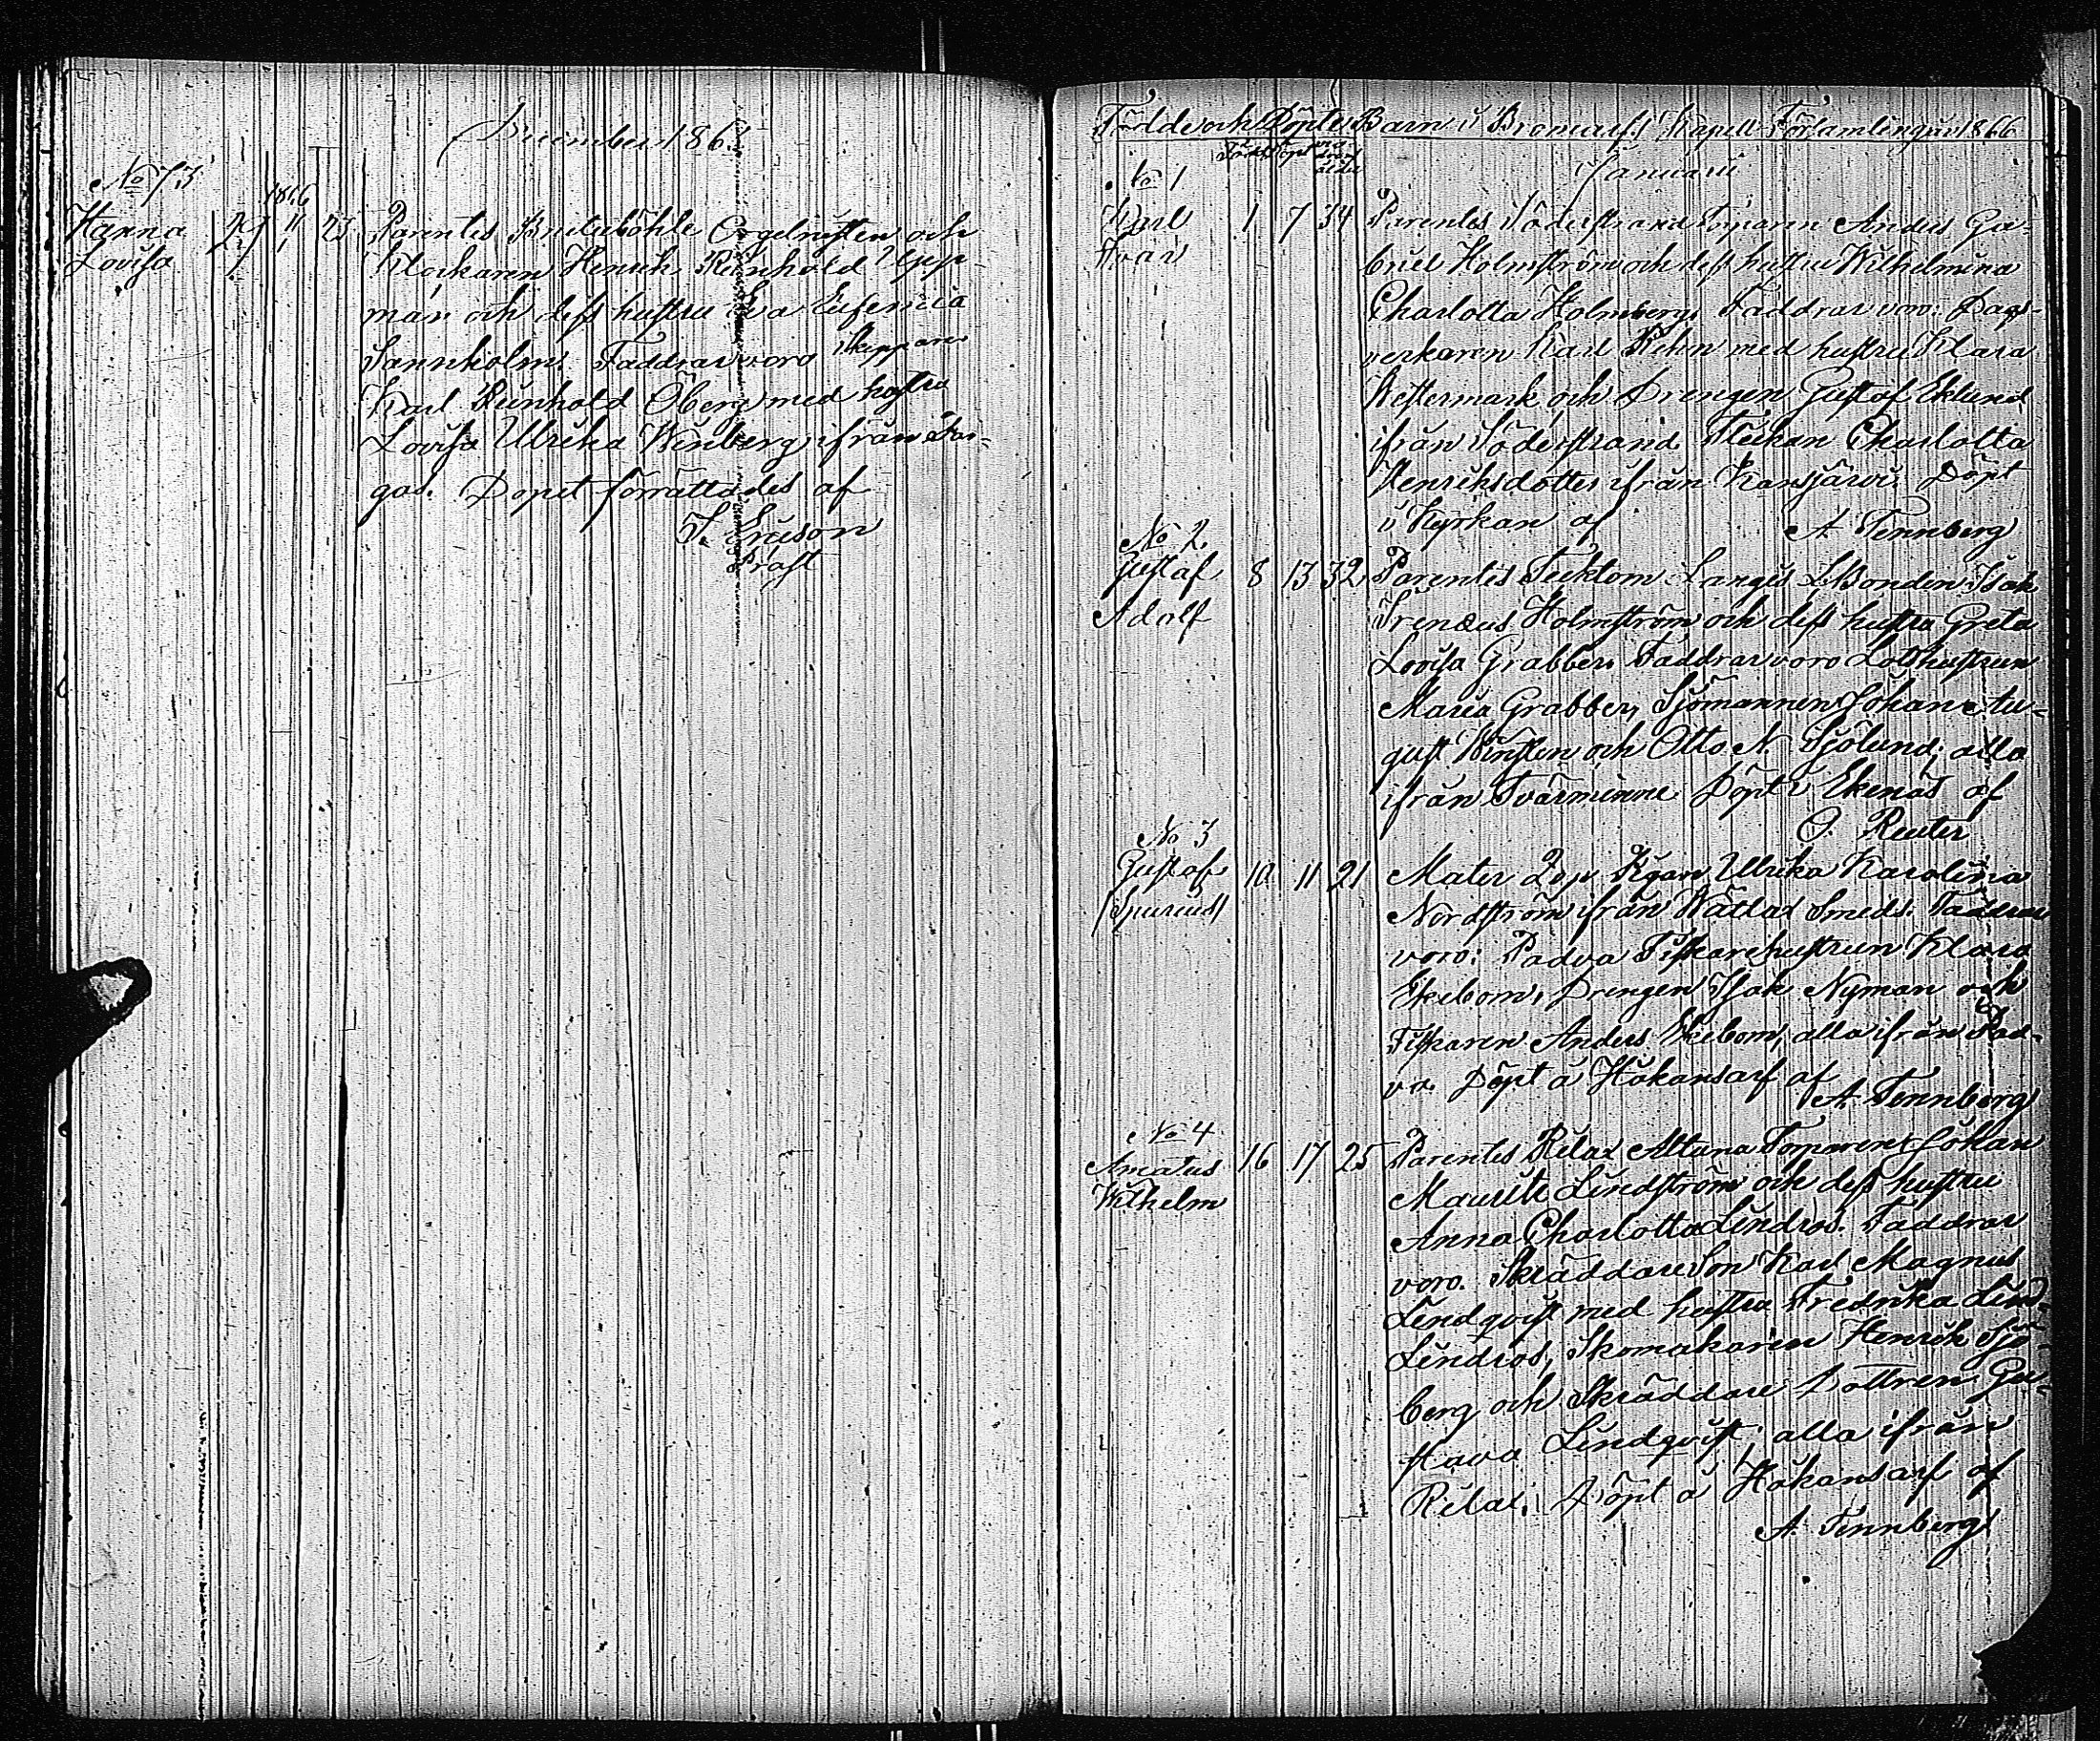 December 186
No 73
1866
Hanna 27 11/1 23 Parentes Orgelnisten och
Lovisa Klockaren Henrik Reinhold
man och dess hustru Eva Eufemia
Sannholm. Faddrar voro Skepparen
Karl Reinhold Öberg med hustru
Lovisa Ulrika Winberg ifrån
gas. Dopet förrättades af
Ericson
Präst
Födde och Döpte Barn i Bromarf Kapell Församling år 1866
Född Döpt ålder
Januarii
No 1
Karl 1 7 34 Parentes Söderstrand Torparen Anders Ga-
Ivar briel Holmström och dess hustru Wilhelmina
Charlotta Holmberg. Faddrar voro: Dags-
verkaren Karl Rehn med hustru Klara
Westermark och Drengen Gustaf Eklund
ifrån Söderstrand. Flickan Charlotta
Henriksdotter ifrån Kansjärvi. Döpt
i Kyrkan af A. Tennberg
No 2.
Gustaf 8 13 32 Parentes Tecktom Langis Bonden Isak
Adolf Holmström och dess hustru Greta
Lovisa Grabber. Faddrar voro Lotshustrun
Maria Grabber, Sjömannen Johan Au-
gust och Otto N. Sjölund; alla
ifrån Tvärminne. Döpt i Ekenäs af
O. Reuter
No 3
Gustaf 10 11 21 Mater Pigan Ulrika Karolina
/Spurius/ Nordström ifrån Vättlax Smeds. Faddrar
voro: Padva Fiskarehustrun Klara
Ekebom, Drengen Isak Nyman och
Fiskaren Anders Ekebom, alla ifrån Pad-
va. Döpt å Håkansarf af
A. Tennberg
No 4
Amatus 16 17 25 Parentes Rilax Altuna Torparen Johan
Wilhelm Mauritz Lindström och dess hustru
Anna Charlotta Lindros. Faddrar
voro. Skräddare Son Karl Magnus
Lindqvist med hustru Fredrika Lind-
Lindros, Skomakaren Henrik Sjö-
berg och Skräddare Dottren Gu-
stava Lindqvist; alla ifrån
Rilax. Döpt å Håkansarf af
A. Tennberg